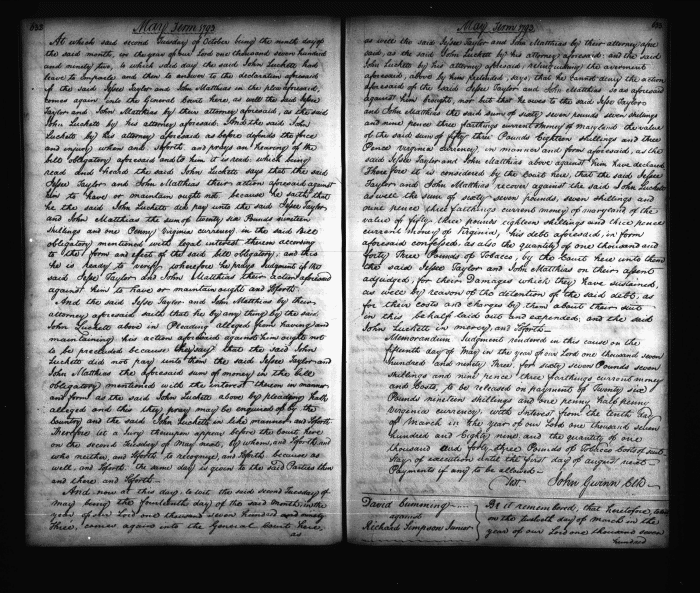 652
May Term 1793
At which said second Tuesday of October being the ninth day of
the said month, in the year of our Lord one thousand seven hundred
and ninety two, to which said day the said John Luckett had
leave to imparle and then to answer to the declaration aforesaid
of the said Jessee Taylor and John Matthias in the plea aforesaid,
comes again into the General Court here, as well the said Jessee
Taylor and John Matthias by their attorney aforesaid, as the said
John Luckett by his attorney aforesaid. And the said John
Luckett by his attorney aforesaid as before defends the force
and injury when and so forth and prays an hearing of the
bill obligatory aforesaid and to him it is read which being
read and heard the said John Luckett says that the said
Jessee Taylor and John Matthias their action aforesaid against
him to have or maintain ought not because he saith that
he the said John Luckett did pay unto the said Jessee Taylor
and John Matthias the sum of twenty six Pounds nineteen
shillings and one Penny Virginia currency in the said Bill
obligatory mentioned with legal interest thereon according
to the form and effect of the said bill obligatory, and this
he is ready to verify wherefore he prays Judgment if the
said Jessee Taylor and John Matthias their action aforesaid
against him to have or maintain ought and so forth.
And the said Jessee Taylor and John Matthias by their
attorney aforesaid saith that he by any thing by the said
John Luckett above in Pleading alleged from having and
maintaining his action aforesaid against him ought not
to be precluded because they say that the said John
Luckett did not pay unto them the said Jessee Taylor and
John Matthias the aforesaid sum of money in the bill
obligatory mentioned with the Interest thereon in manner
and form as the said John Luckett above by pleading hath
alleged and this they pray may be enquired of by the
Country and the said John Luckett in like manner and so forth
Therefore let a Jury thereupon appear before the Court here
on the second Tuesday of May next, by whom, and so forth and
who neither, and so forth, to recognize, and so forth because as
well, and so forth. the same day is given to the said Parties then
and there and so forth
And now at this day, to wit, the said second Tuesday of
May being the fourteenth day of the said Month in the
year of our Lord one thousand seven hundred and ninety
three, comes again into the General Court here,
as
May Term 1793
653
as well the said Jessee Taylor and John Matthias by their attorney afore
said, as the said John Luckett by his attorney aforesaid; and the said
John Luckett by his attorney aforesaid relinquishing the averment
aforesaid, above by him pretended, says, that he cannot deny the action
aforesaid of the said Jessee Taylor and John Matthias so as aforesaid
against him brought, nor but that he owes to the said Jessee Taylor
and John Matthias the said sum of sixty seven pounds seven shillings
and nine pence three farthings current Money of Maryland the value
of the said sum of fifty three Pounds eighteen shillings and three
Pence Virginia currency, in manner and form aforesaid, as the
said Jessee Taylor and John Matthias above against him have declared
Therefore it is considered by the Court here, that the said Jessee
Taylor and John Matthias recover against the said John Luckett
as well the sum of sixty seven pounds, seven shillings and
nine pence three farthings current money of maryland the
value of fifty three pounds eighteen shillings and three pence
current money of Virginia, his debt aforesaid, in form
aforesaid confessed, as also the quantity of one thousand and
forty three Pounds of Tobacco, by the Court here unto them
the said Jessee Taylor and John Matthias on their assent
adjudged, for their Damages which they have sustained,
as well by reason of the detention of the said debt, as
for their costs and charges by them about their suit
in this behalf laid out and expended, and the said
John Luckett in mercy, and so forth
Memorandum Judgment rendered in this cause on the
fifteenth day of May in the year of our Lord one thousand seven
hundred and ninety three for sixty seven Pounds seven
shillings and nine pence three farthings current money
and Costs, to be released on payment of twenty six
Pounds nineteen shillings and one penny half penny
Virginia currency, with Interest from the tenth day
of March in the year of our Lord one thousand seven
hundred and Eighty nine and the quantity of one
thousand and forty three Pounds of Tobacco Costs of suit.
Stay of execution until the first day of august next
Payments if any to be allowed
Test. John Gwinn Clk.
David Cumming
against
Richard Simpson Junior
Be it remembered, that heretofore, to wit
on the twelfth day of march in the
year of our Lord one thousand seven
hundred